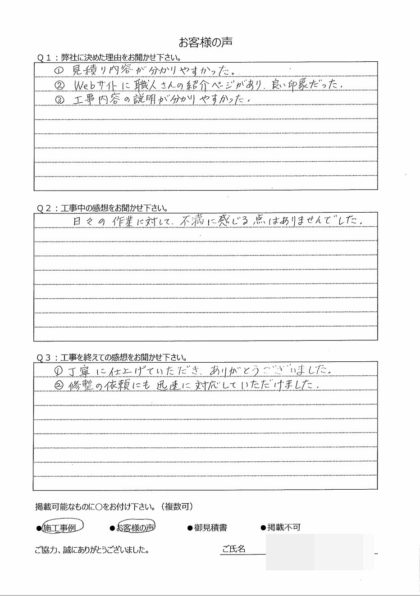 お客様の声
Q1：弊社に決めた理由をお聞かせ下さい。
① 見積り内容が分かりやすかった。
② Webサイトに職人さんの紹介ページがあり、良い印象だった。
③ 工事内容の説明が分かりやすかった。
Q2：工事中の感想をお聞かせ下さい。
日々の作業に対して、不満に感じる点はありませんでした。
Q3：工事を終えての感想をお聞かせ下さい。
① 丁寧に仕上げていただき、ありがとうございました。
② 修整の依頼にも迅速に対応していただけました。
掲載可能なものに○をお付け下さい。（複数可）
●施工事例 ●お客様の声 ●御見積書 ●掲載不可
ご協力、誠にありがとうございました。 ご氏名